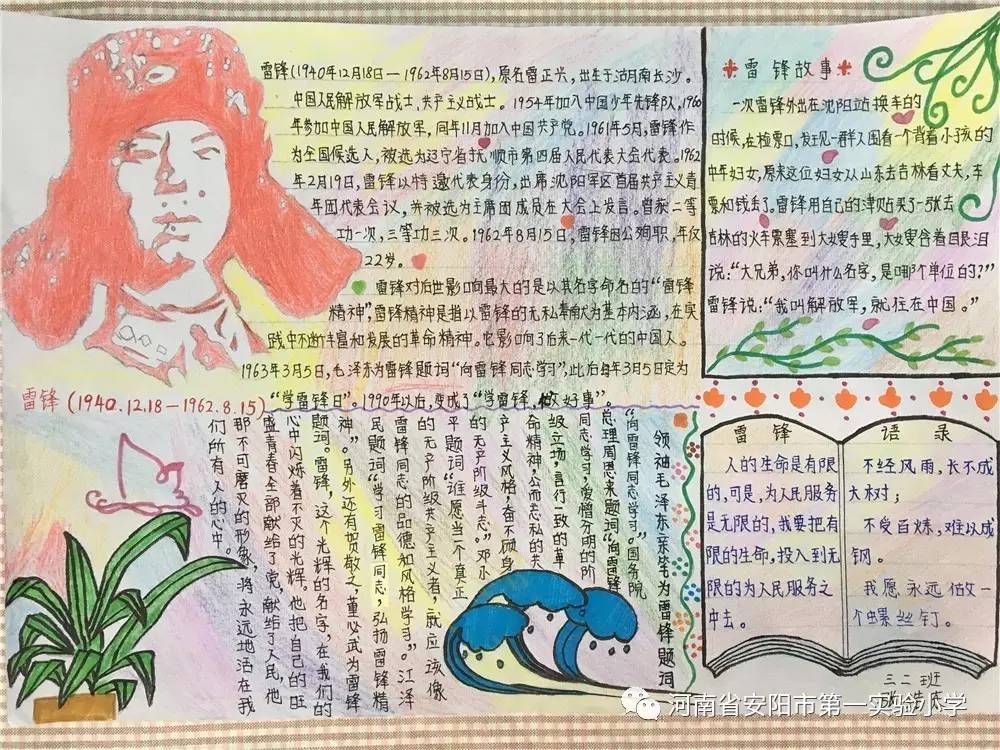 雷锋(1940年12月18日—1962年8月15日),原名雷正兴,出生于湖南长沙。
中国人民解放军战士、共产主义战士。1954年加入中国少年先锋队,1960
年参加中国人民解放军,同年11月加入中国共产党。1961年5月,雷锋作
为全国候选人,被选为辽宁省抚顺市第四届人民代表大会代表。1962
年2月19日,雷锋以特邀代表身份,出席沈阳军区首届共产主义青
年团代表会议,并被选为主席团成员在大会上发言。曾获二等
功一次,三等功三次。1962年8月15日,雷锋因公殉职,年仅
22岁。
雷锋对后世影响最大的是以其名字命名的“雷锋
精神”,雷锋精神是指以雷锋的无私奉献为基本内涵,在实
践中不断丰富和发展的革命精神。它影响了后来一代一代的中国人。
1963年3月5日,毛泽东为雷锋题词“向雷锋同志学习”,此后每年3月5日定为
“学雷锋日”。1990年以后,变成了“学雷锋,做好事”。
雷锋(1940.12.18—1962.8.15)
雷锋故事
一次雷锋外出在沈阳站换车的
时候,在检票口,发现一群人围看一个背着小孩的
中年妇女,原来这位妇女从山东去吉林看丈夫,车
票和钱丢了。雷锋用自己的津贴买了一张去
吉林的火车票塞到大嫂手里,大嫂含着眼泪
说:“大兄弟,你叫什么名字,是哪个单位的?”
雷锋说:“我叫解放军,就住在中国。”
领袖毛泽东亲笔为雷锋题词
“向雷锋同志学习”。国务院
总理周恩来题词“向雷锋
同志学习,爱憎分明的阶
级立场,言行一致的革
命精神,公而忘私的共
产主义风格,奋不顾身
的无产阶级斗志。”邓小
平题词“谁愿当一个真正
的无产阶级共产主义者,就应该像
雷锋同志的品德和风格学习”。江泽
民题词“学习雷锋同志,弘扬雷锋精
神”。另外还有贺敬之,董必武为雷锋
题词。雷锋,这个光辉的名字,在我们的
心中闪烁着不灭的光辉。他把自己的旺
盛青春全部献给了党,献给了人民,他
那不可磨灭的形象,将永远地活在我
们所有人的心中。
雷锋
人的生命是有限
的,可是,为人民服务
是无限的,我要把有
限的生命,投入到无
限的为人民服务之
中去。
语录
不经风雨,长不成
大树;
不受百炼,难以成
钢。
我愿永远做一
个螺丝钉。
三二班
河南省安阳市第一实验小学